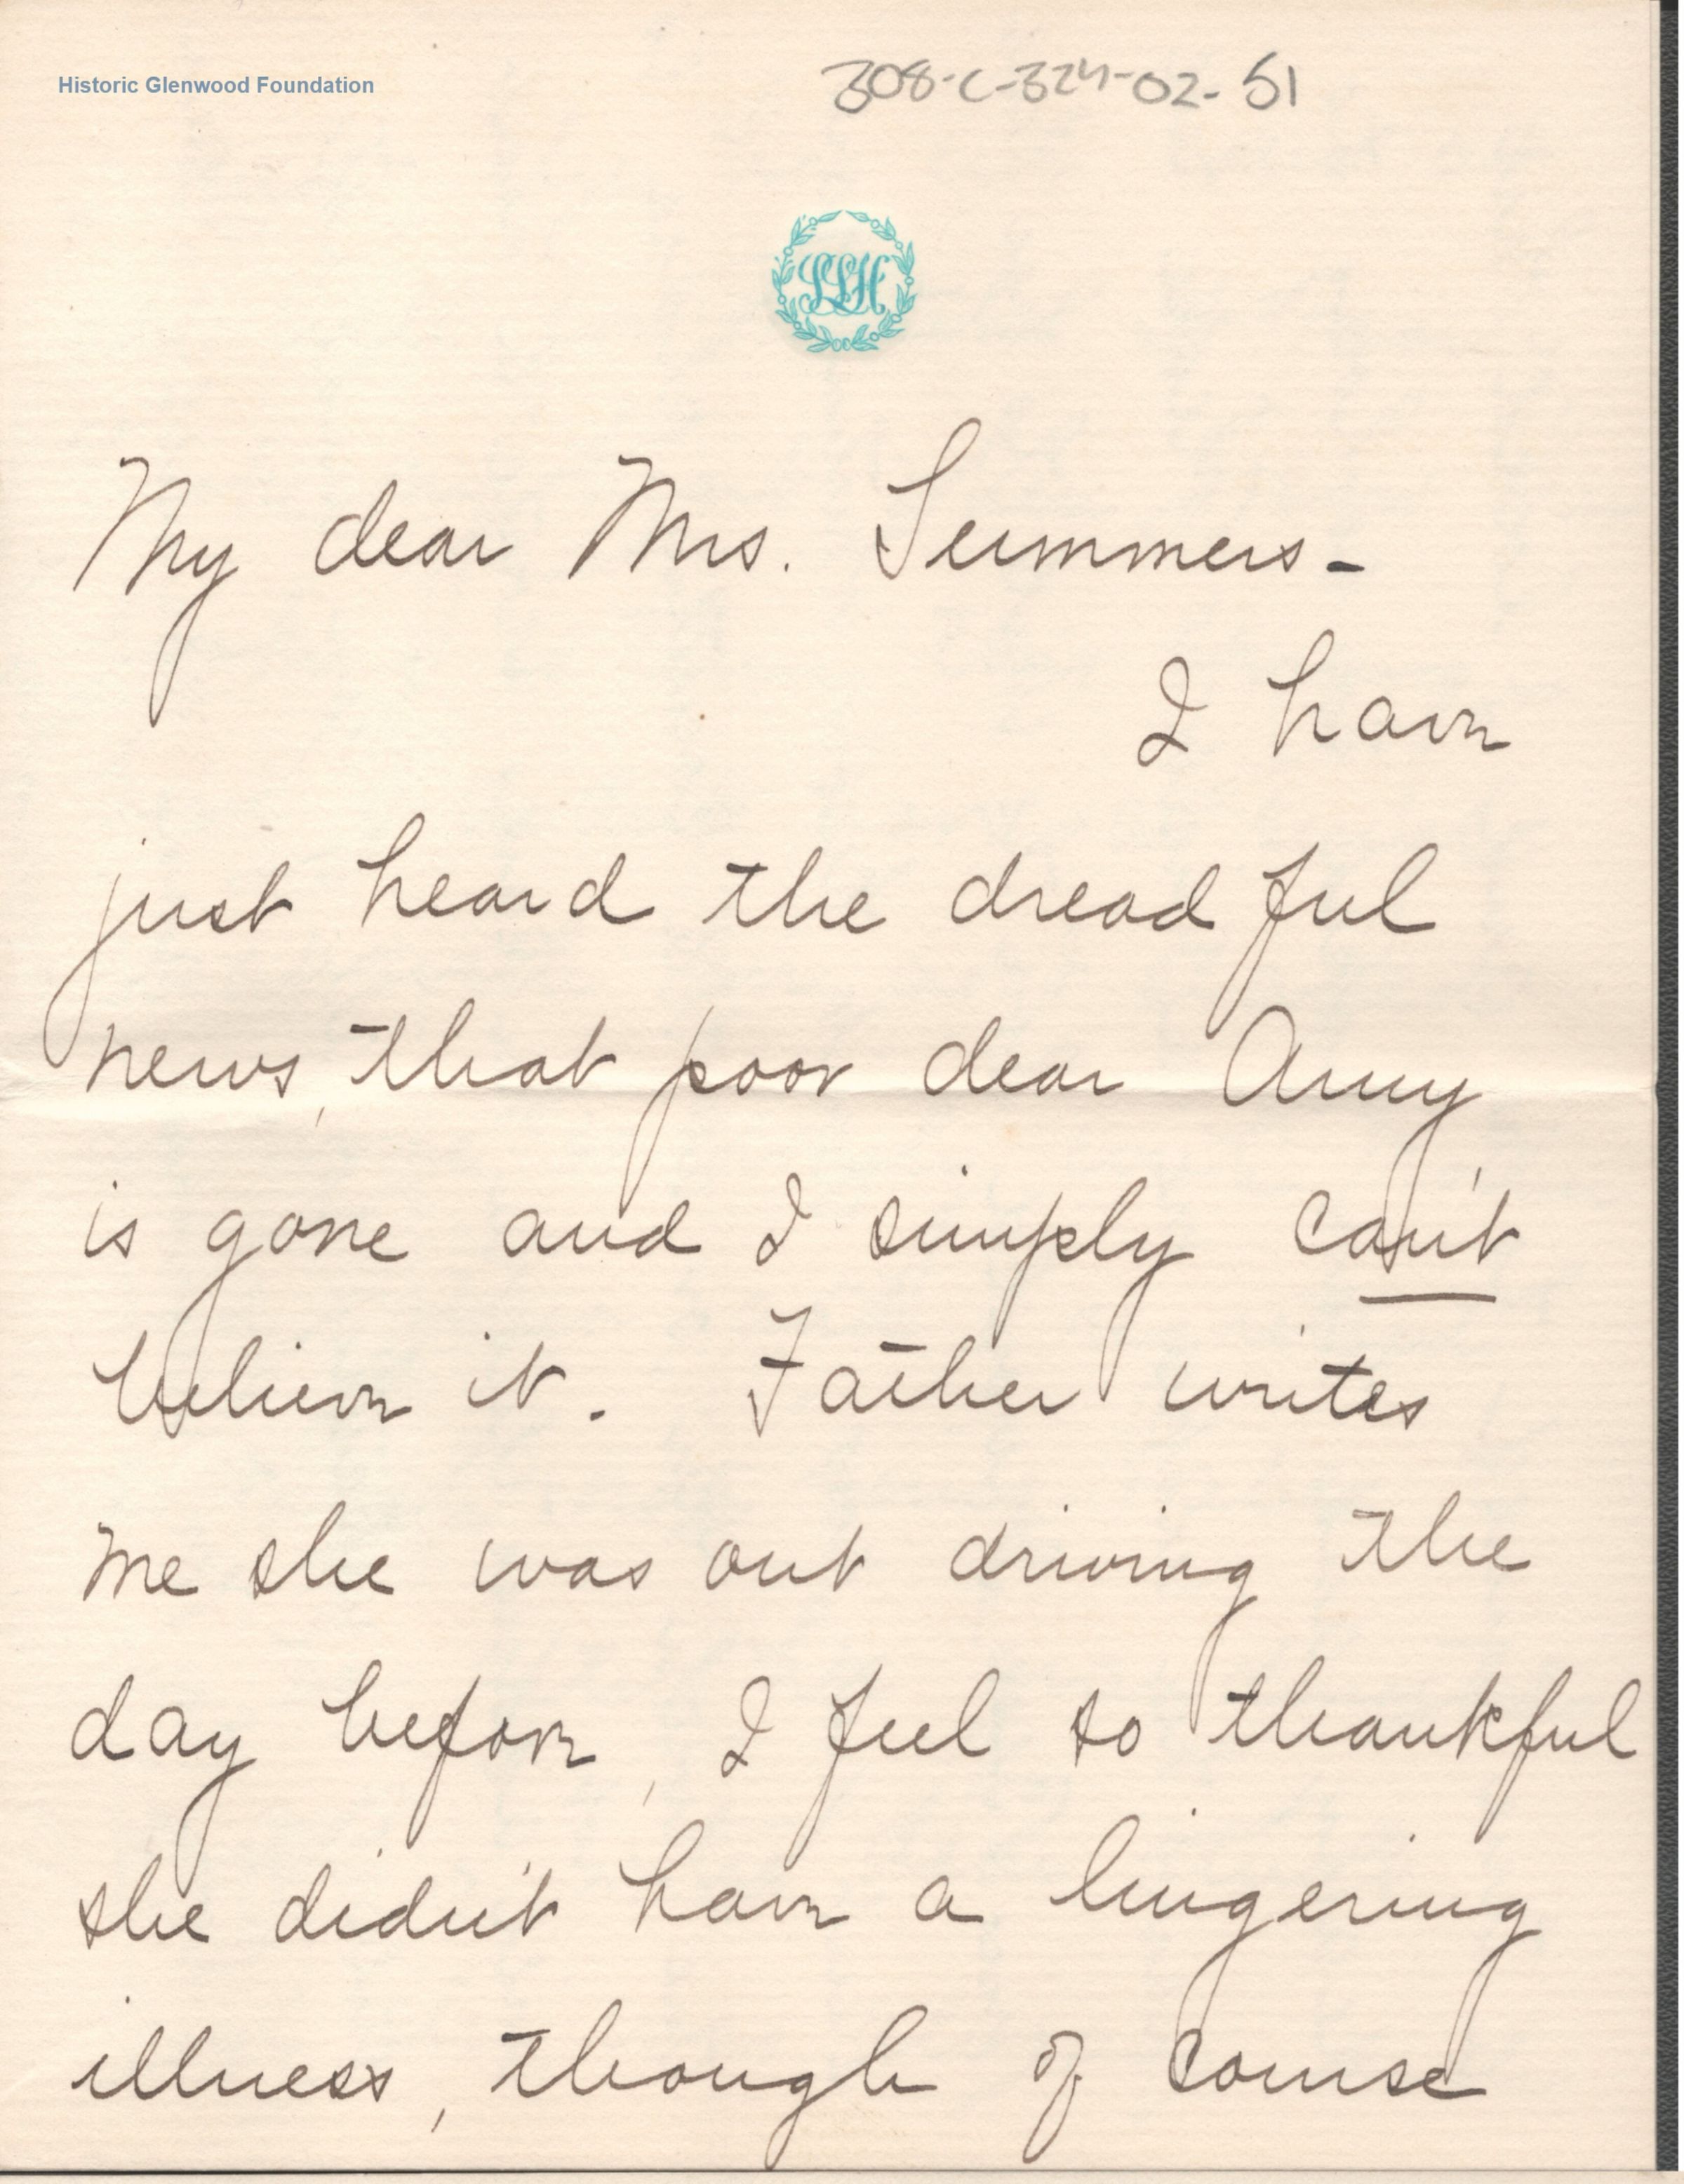 Historic Glenwood Foundation
308-C-324-02-51
LLH
My dear Mrs. Summers-
I have
just heard the dreadful
news, that poor dear Amy
is gone and I simply can't
believe it. Father writes
me she was out driving the
day before, I feel so thankful
she didn't have a lingering
illness, though of course